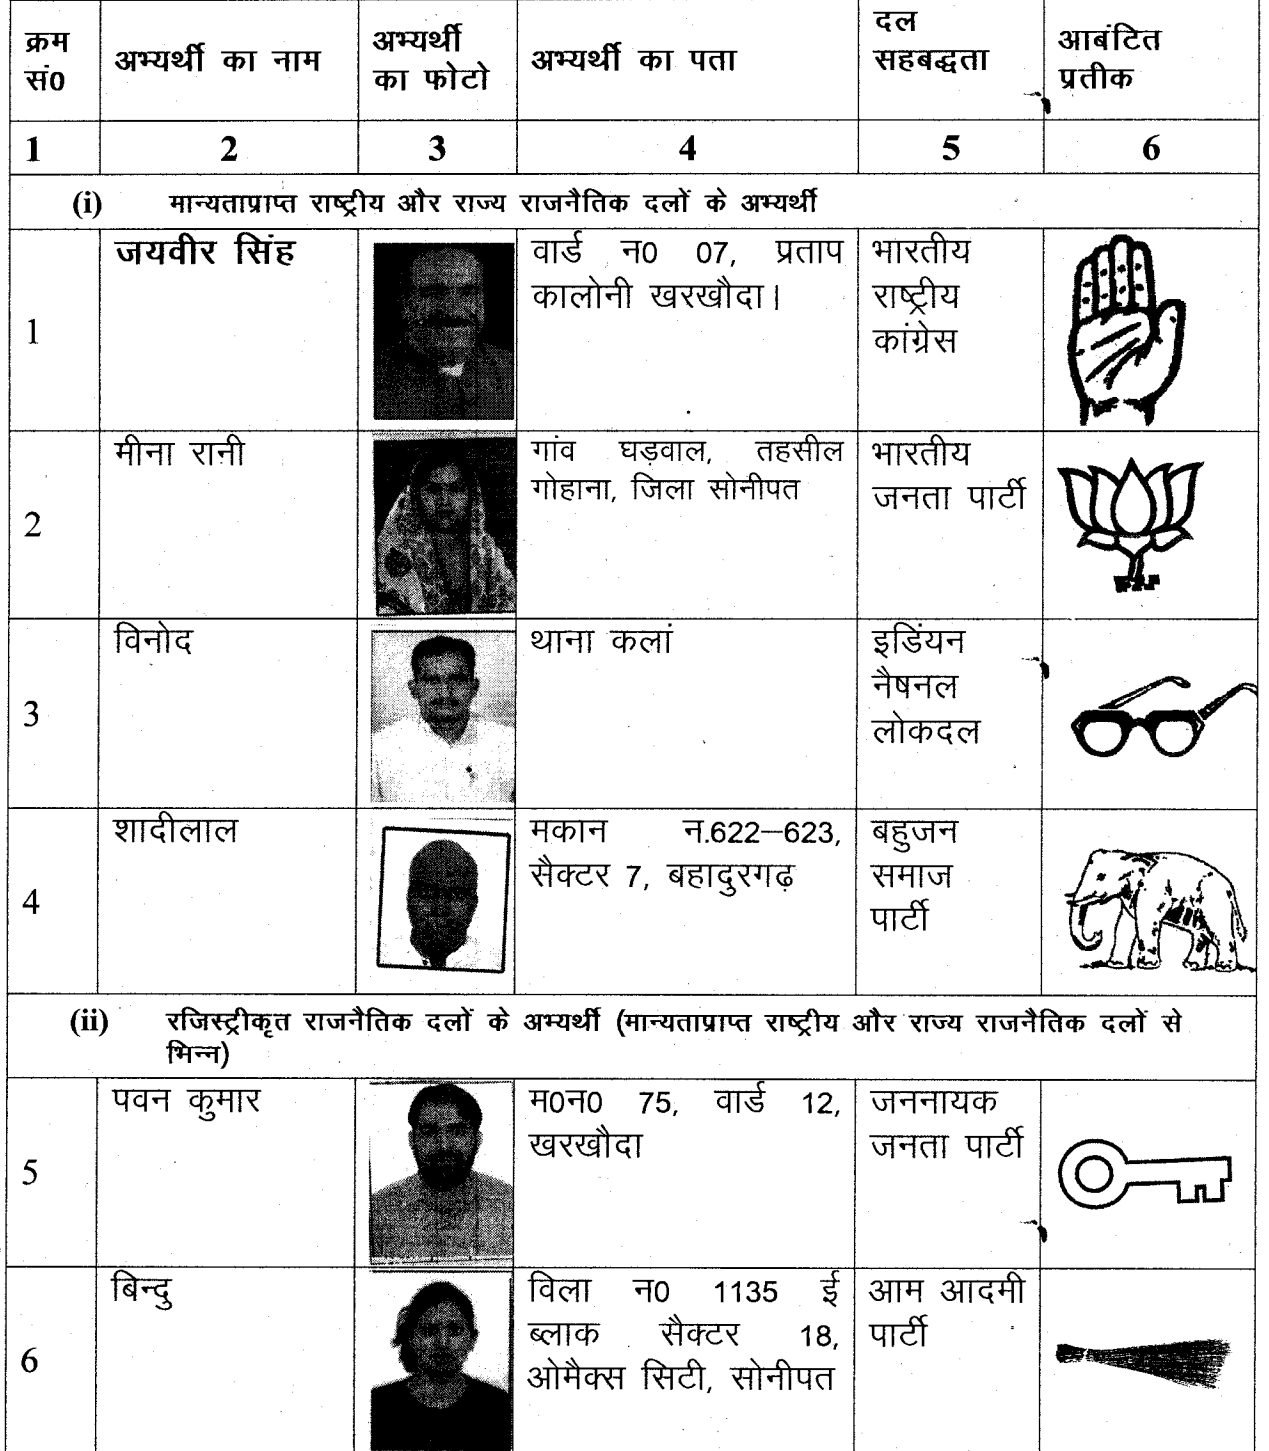 क्रम
सं0
अभ्यर्थी का नाम
अभ्यर्थी
का फोटो
अभ्यर्थी का पता
दल
सहबद्धता
आबंटित
प्रतीक
1 2 3 4 5 6
(i) मान्यताप्राप्त राष्ट्रीय और राज्य राजनैतिक दलों के अभ्यर्थी
1
जयवीर सिंह
वार्ड न0 07, प्रताप
कालोनी खरखौदा।
भारतीय
राष्ट्रीय
कांग्रेस
2
मीना रानी
गांव घड़वाल, तहसील
गोहाना, जिला सोनीपत
भारतीय
जनता पार्टी
3
विनोद
थाना कलां
इडिंयन
नैषनल
लोकदल
4
शादीलाल
मकान न.622–623,
सैक्टर 7, बहादुरगढ़
बहुजन
समाज
पार्टी
(ii) रजिस्ट्रीकृत राजनैतिक दलों के अभ्यर्थी (मान्यताप्राप्त राष्ट्रीय और राज्य राजनैतिक दलों से
भिन्न)
5
पवन कुमार
म0न0 75, वार्ड 12,
खरखौदा
जननायक
जनता पार्टी
6
बिन्दु
विला न0 1135 ई
ब्लाक सैक्टर 18,
ओमैक्स सिटी, सोनीपत
आम आदमी
पार्टी